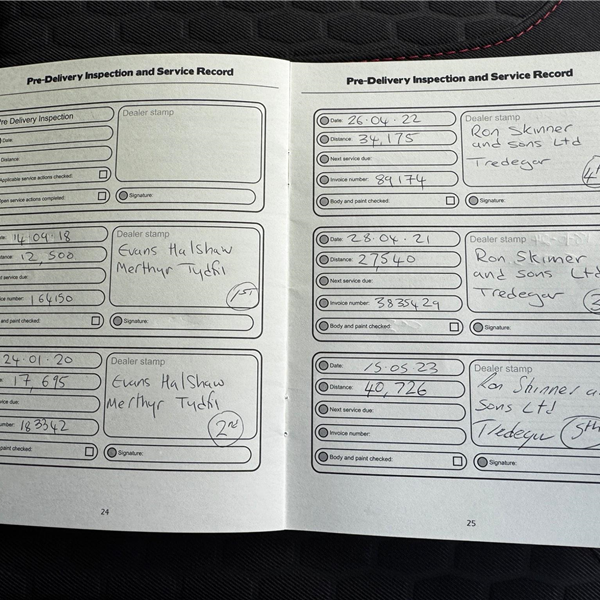 Pre-Delivery Inspection and Service Record
Pre Delivery Inspection
Dealer stamp
Date:
Distance:
Applicable service actions checked:
Open service actions completed:
Signature:
14·09·18
Dealer stamp
12,500
Evans Halshaw
Merthyr Tydfil
service due:
number: 164150
1st
and paint checked:
Signature:
24·01·20
Dealer stamp
17,695
Evans Halshaw
Merthyr Tydfil
due:
number: 183342
2nd
paint checked:
Signature:
24
Pre-Delivery Inspection and Service Record
Date: 26·04·22
Dealer stamp
Distance: 34,175
Ron Skinner
and sons Ltd
Tredegar
Next service due:
Invoice number: 89174
Body and paint checked:
Signature:
Date: 28·04·21
Dealer stamp
Distance: 27540
Ron Skinner
and sons Ltd
Tredegar
Next service due:
Invoice number: 3835429
Body and paint checked:
Signature:
Date: 15·05·23
Dealer stamp
Distance: 40,726
Ron Skinner
Sons Ltd
Tredegar
5th
Next service due:
Invoice number:
Body and paint checked:
Signature:
25